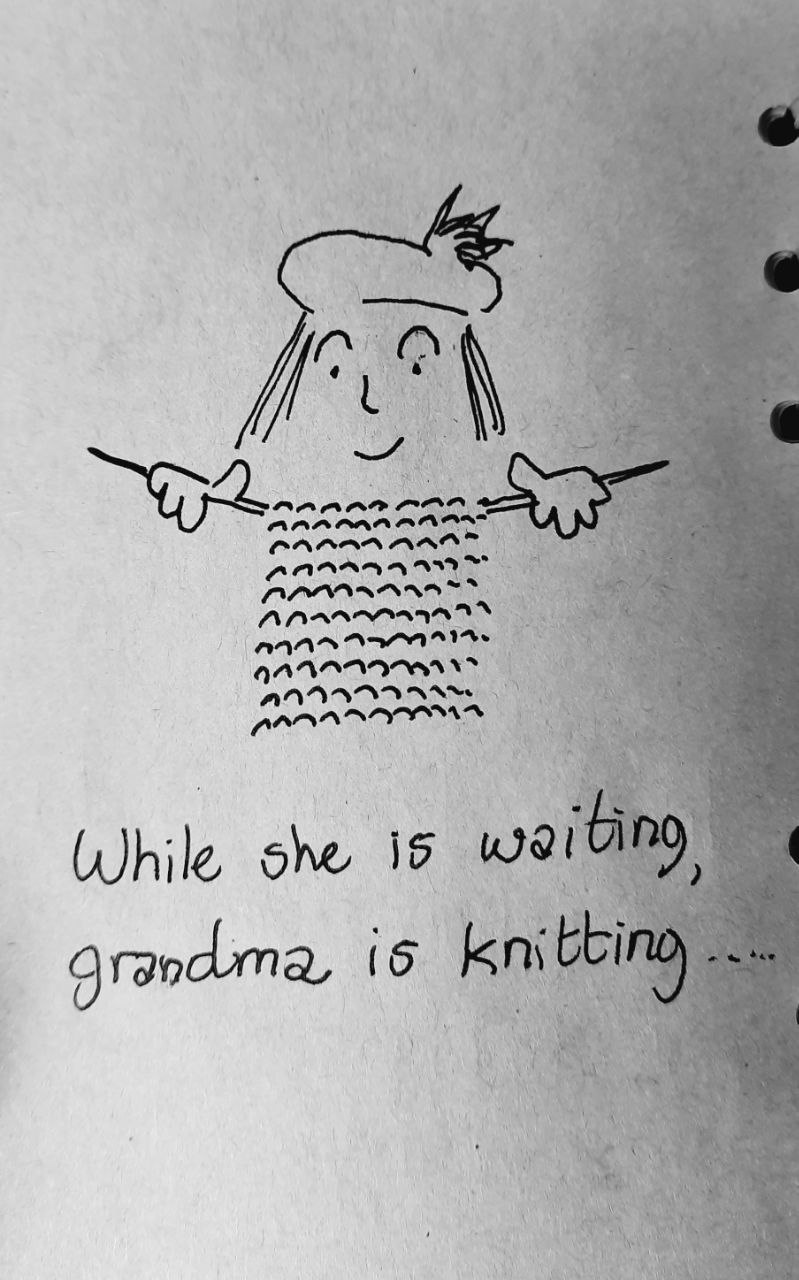 While she is waiting,
grandma is knitting.....